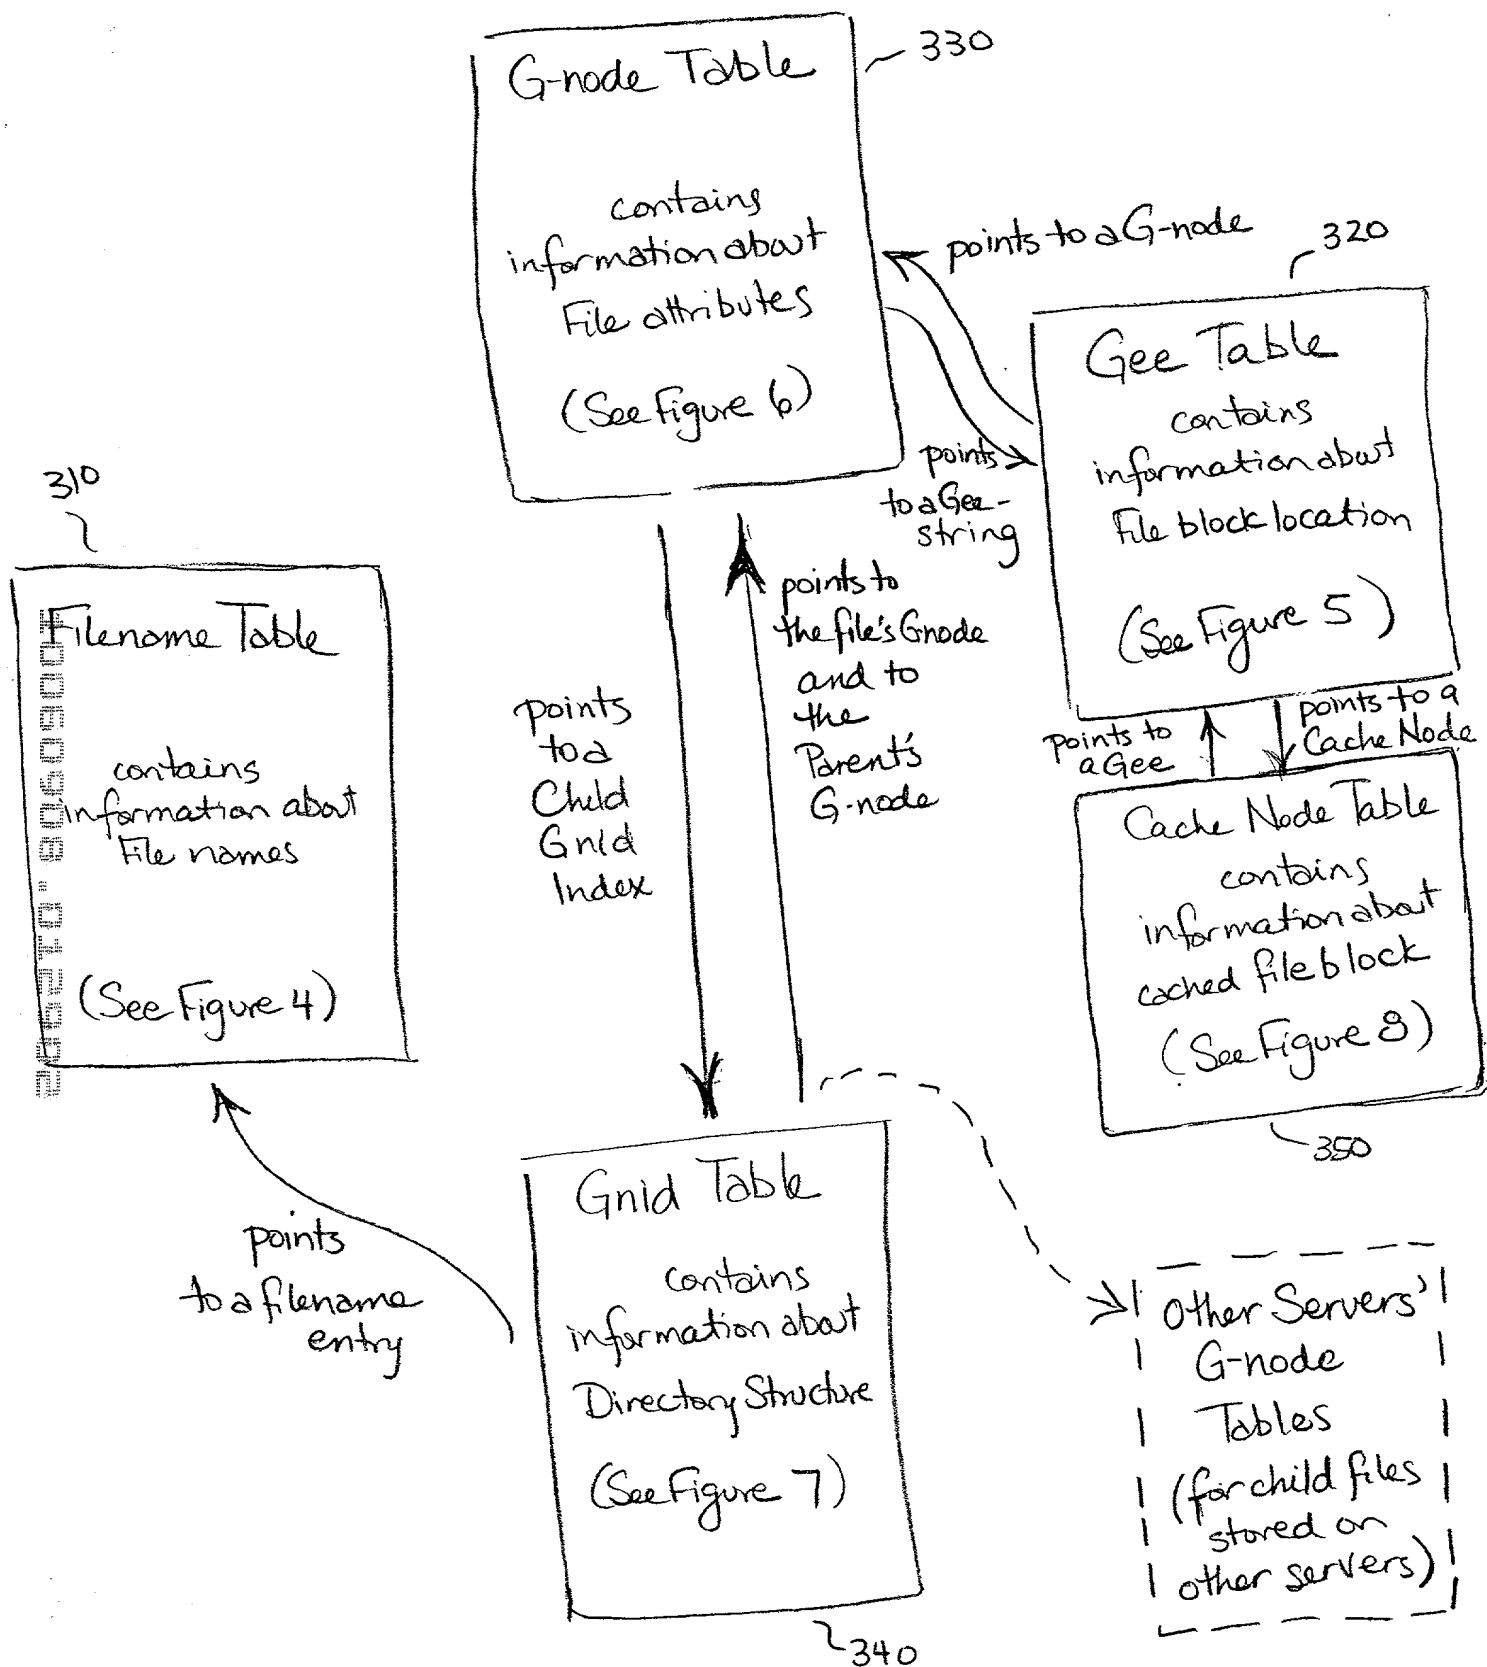 330
G-node Table
contains
information about
File attributes
(See Figure 6)
points to a G-node
320
Gee Table
contains
information about
File block location
(See Figure 5)
points
to a Gee-
string
310
Filename Table
contains
information about
File names
(See Figure 4)
points
to a
Child
Gnid
Index
points to
the file's Gnode
and to
the
Parent's
G-node
points to
a Gee
points to a
Cache Node
Cache Node Table
contains
information about
cached file block
(See Figure 8)
350
points
to a filename
entry
Gnid Table
contains
information about
Directory Structure
(See Figure 7)
340
Other Servers'
G-node
Tables
(for child files
stored on
other servers)